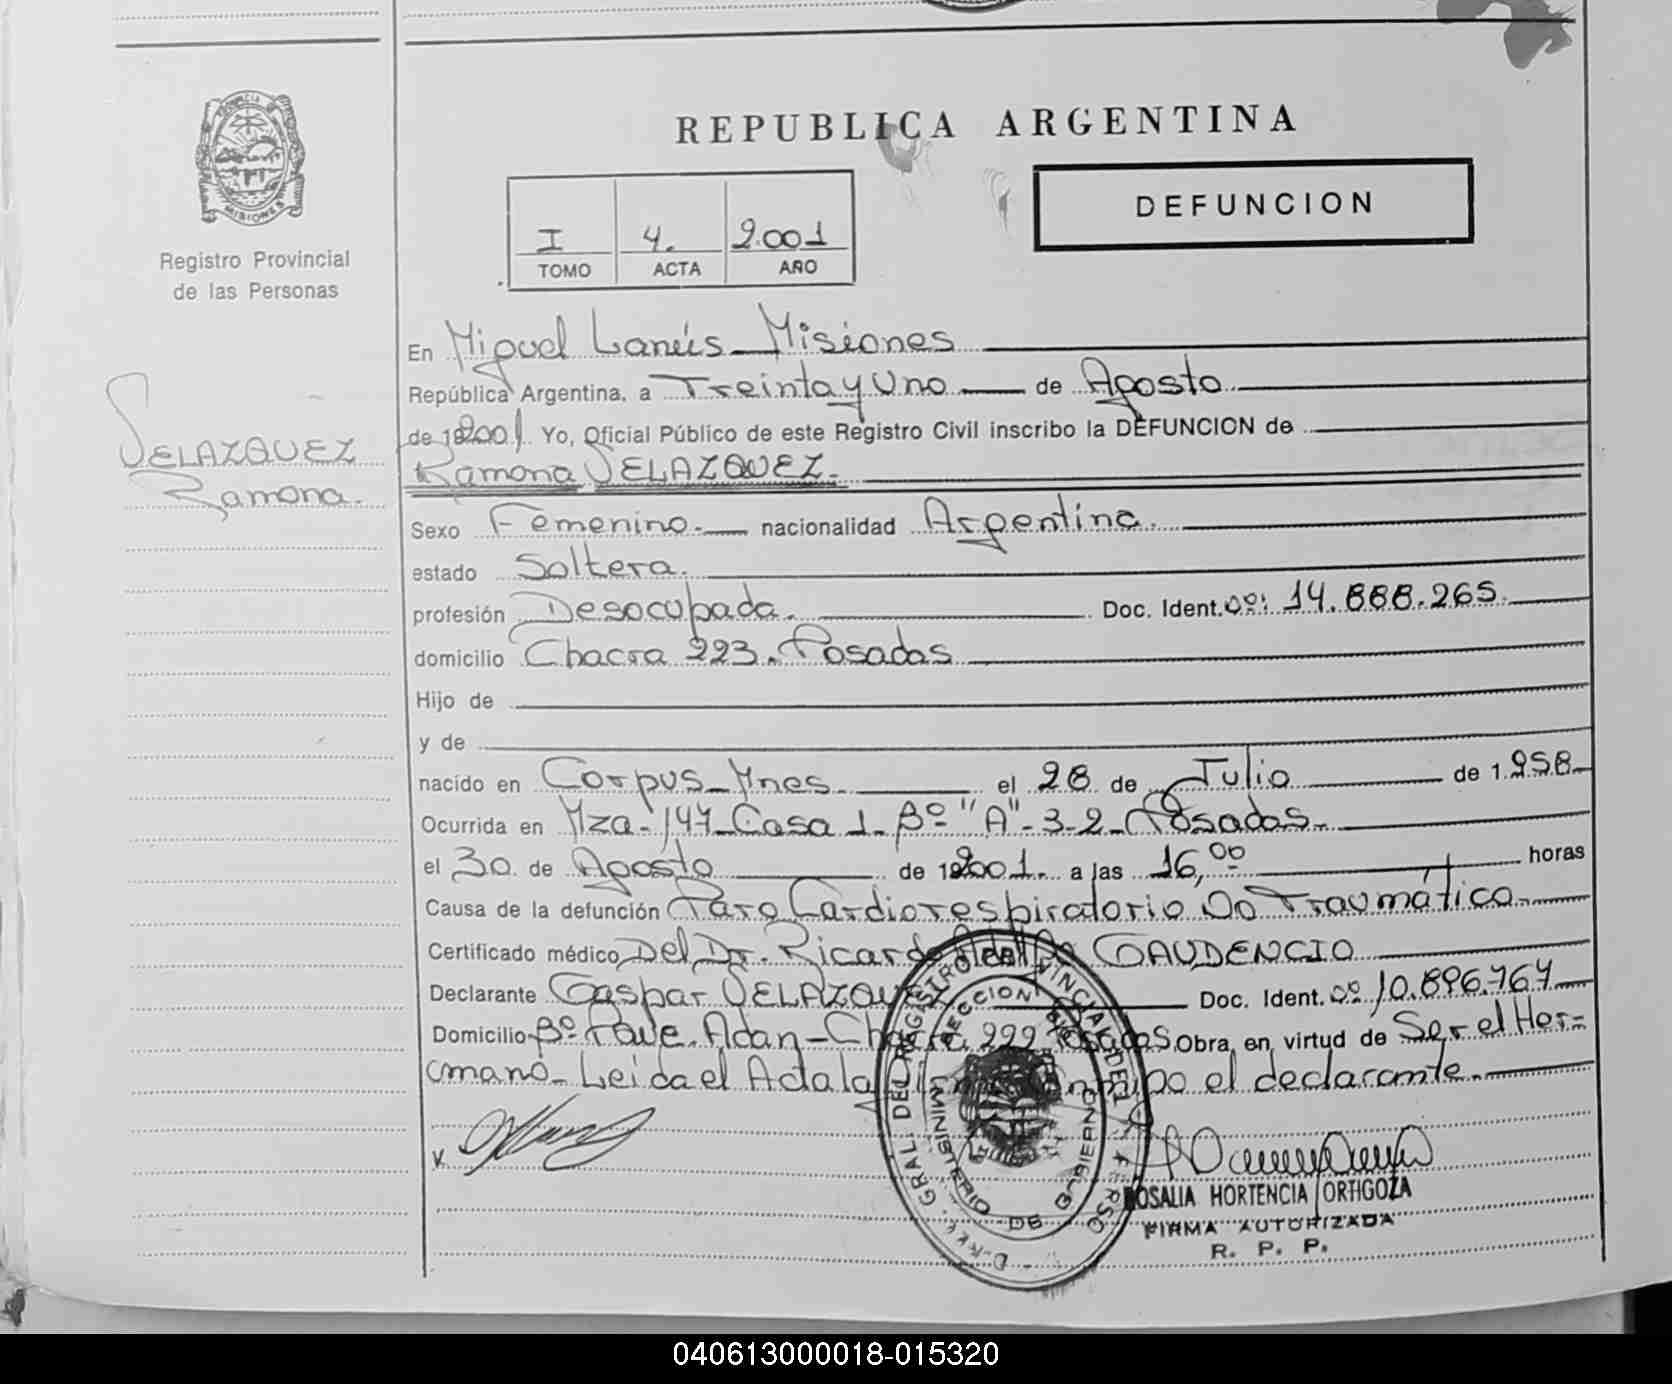 REPUBLICA ARGENTINA
DEFUNCION
I 4. 2.001
TOMO ACTA AÑO
MISIONES
Registro Provincial
de las Personas
VELAZQUEZ
Ramona.
En Miguel Lanús - Misiones
República Argentina, a Treinta y Uno de Agosto
de 2001. Yo, Oficial Público de este Registro Civil inscribo la DEFUNCION de
Ramona VELAZQUEZ.
Sexo Femenino. nacionalidad Argentina.
estado Soltera.
profesión Desocupada. Doc. Ident. nº: 14.888.265.
domicilio Chacra 223. Posadas
Hijo de
y de
nacido en Corpus - Mnes. el 28 de Julio de 1.958
Ocurrida en Mza- 147 - Casa 1 - Bº "A"- 3-2 - Posadas.
el 30. de Agosto de 2001. a las 16,00 horas
Causa de la defunción Paro Cardiorespiratorio No Traumático.
Certificado médico Del Dr. Ricardo GAUDENCIO
Declarante Gaspar VELAZQUEZ Doc. Ident. nº 10.896.767
Domicilio Bº Adan - Chacra 222 Posadas. Obra, en virtud de Ser el Her=
mano - Leida el Acta la el declarante.
ROSALIA HORTENCIA ORTIGOZA
FIRMA AUTORIZADA
R. P. P.
MINISTERIO DE GOBIERNO
040613000018-015320